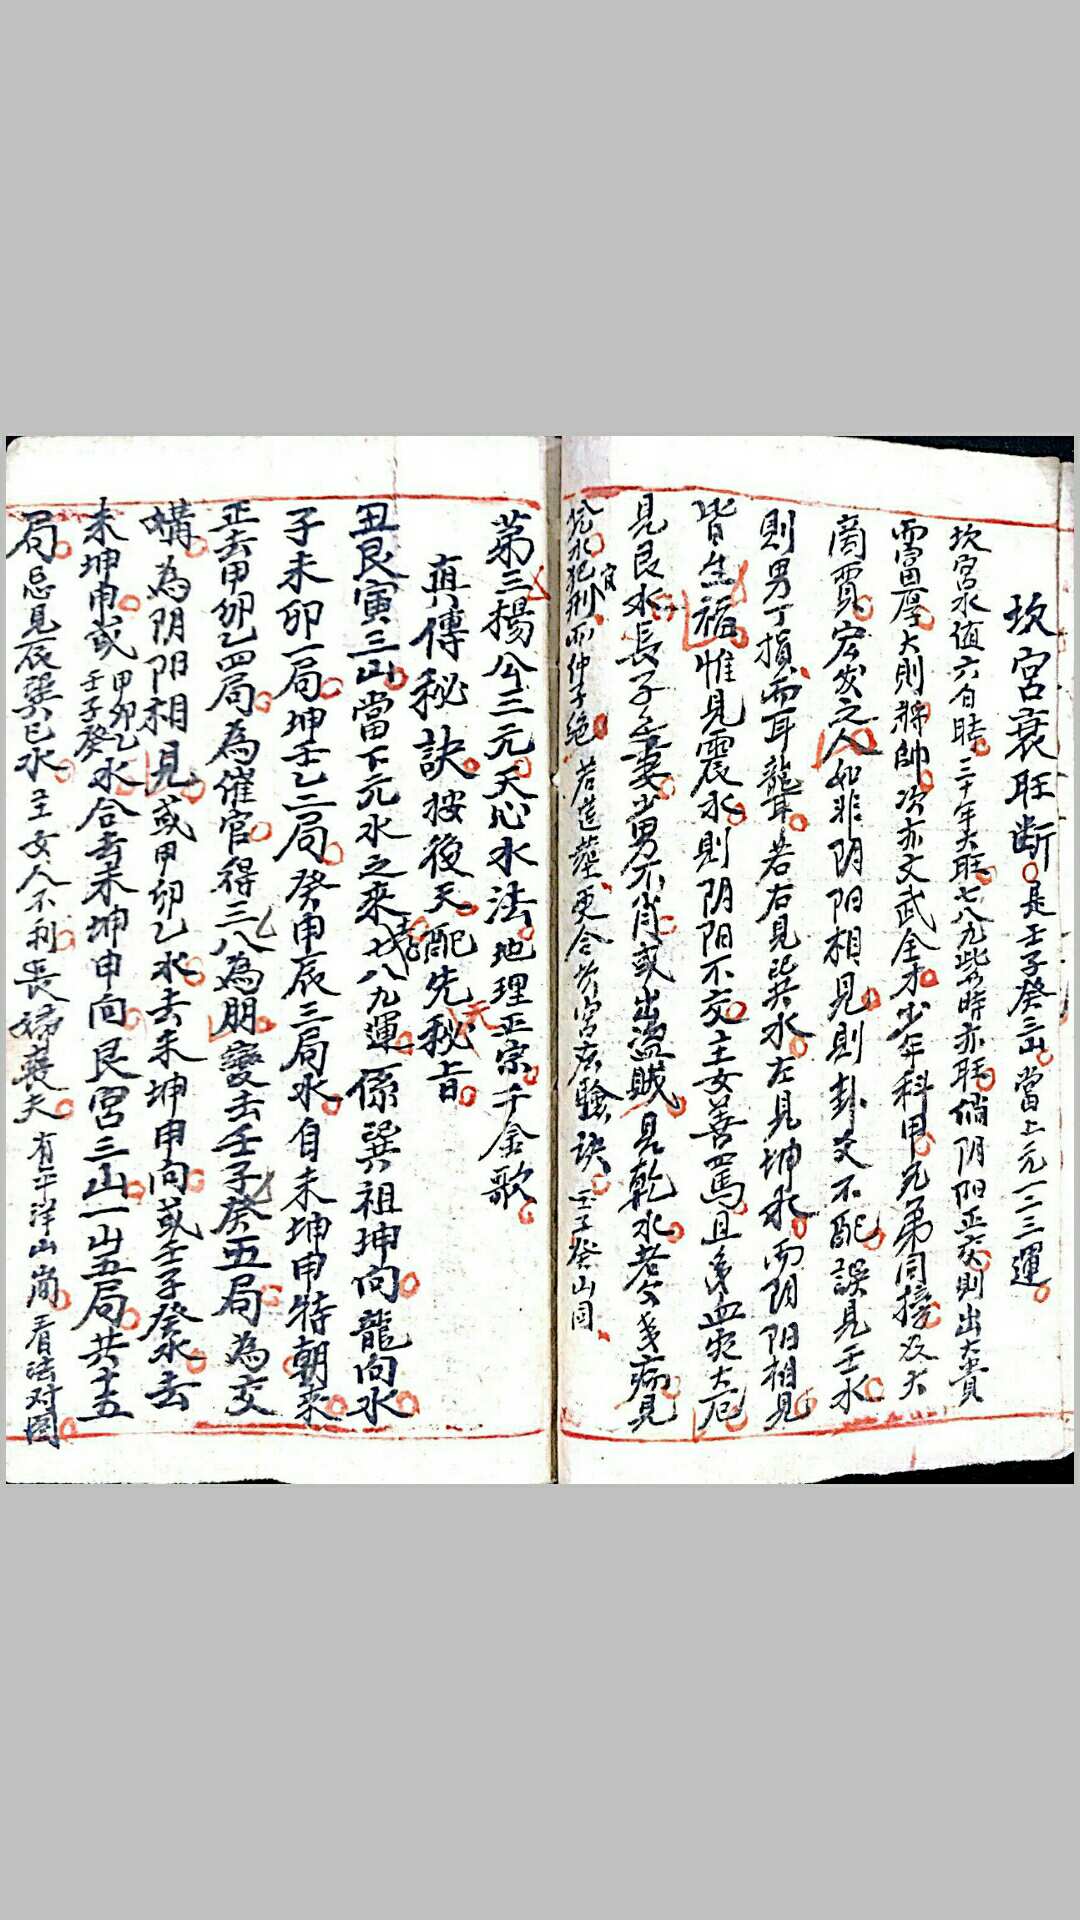 坎宮衰旺断是壬子癸三山當上元一二三運
坎宮水值六白時三十年大旺七八九些時亦旺倘阴阳正交則出大貴
而富厚大則將帥次亦文武全才少年科甲兄弟同接及大
商賈宏發之人如非阴阳相見則卦爻不配誤見壬水
則男丁損而耳聾若右見巽水左見坤水而阴阳相見
皆無福惟見震水則阴阳不交主女善罵且血
見艮水長子妻男不肖或出盜賊見乾水老病見
水犯刑而仲子絶若造墓更令訣壬子癸山同
官
第三楊公三元天心水法地理正宗千金歌
真傳秘訣按後天配先天秘旨
丑艮寅三山當下元水之來七八九運係巽祖坤向龍向水
子未卯一局坤壬乙二局癸申辰三局水自未坤申特朝來
正去甲卯乙四局為催官得三八為朋變去壬子癸五局為交
媾為阴阳相見或甲卯乙水去未坤申向或壬子癸水去
未坤申或甲卯乙壬子癸水合去未坤申向艮宮三山一山五局共十五
局忌見辰巽巳水主女人不利長婦喪夫有平洋山崗看法对圖